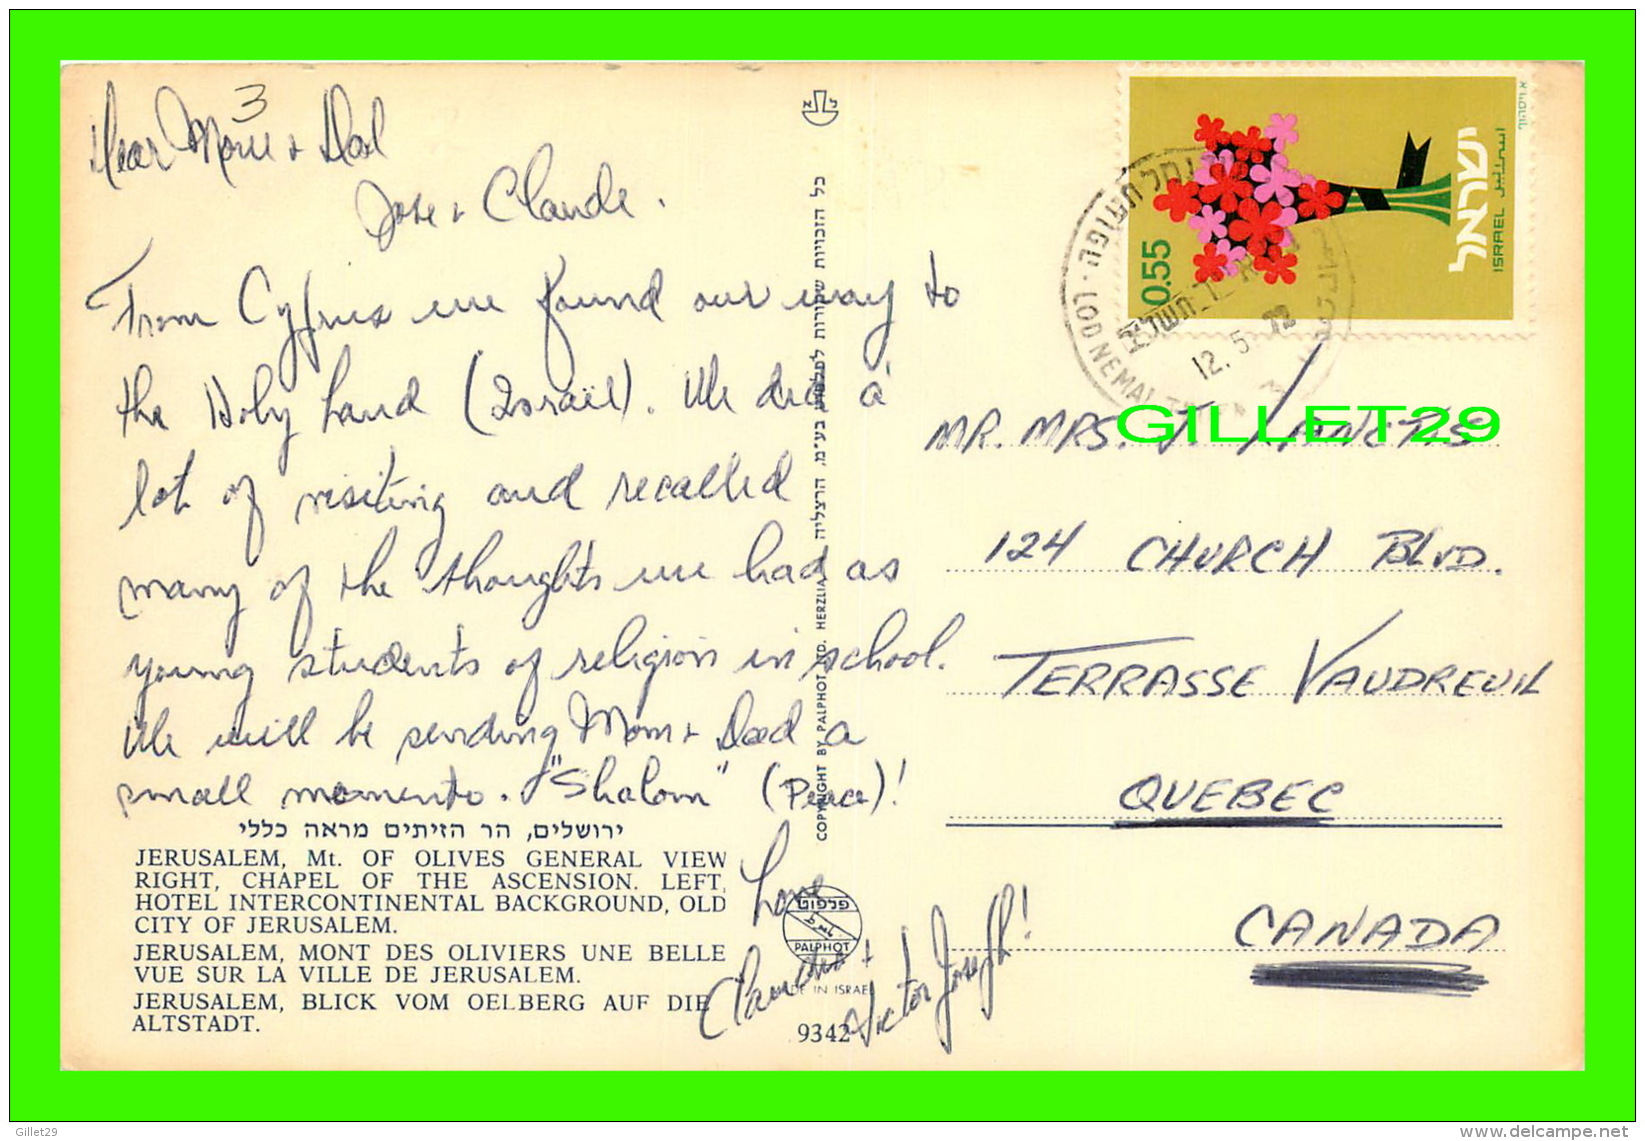 3
Dear Mom + Dad
Jose + Claude.
From Cyprus we found our way to
the Holy Land (Israël). We did a
lot of visiting and recalled
many of the thoughts we had as
young students of religion in school.
We will be sending Mom + Dad a
small momento. "Shalom" (Peace)!
Love
Claudia +
Victor Joseph!
ירושלים, הר הזיתים מראה כללי
JERUSALEM, Mt. OF OLIVES GENERAL VIEW
RIGHT, CHAPEL OF THE ASCENSION. LEFT,
HOTEL INTERCONTINENTAL BACKGROUND, OLD
CITY OF JERUSALEM.
JERUSALEM, MONT DES OLIVIERS UNE BELLE
VUE SUR LA VILLE DE JERUSALEM.
JERUSALEM, BLICK VOM OELBERG AUF DIE
ALTSTADT.
כל הזכויות שמורות לפלפוט בע״מ, הרצליה
COPYRIGHT BY PALPHOT LTD. HERZLIA
פלפוט
PALPHOT
MADE IN ISRAEL
9342
0.55
ישראל
ISRAEL
اسرائيل
נמל תעופה
LOD NEMAL
12.5 72
GILLET29
MR. MRS. J. LANCTIS
124 CHURCH BLVD.
TERRASSE VAUDREUIL
QUEBEC
CANADA
Gillet29
www.delcampe.net